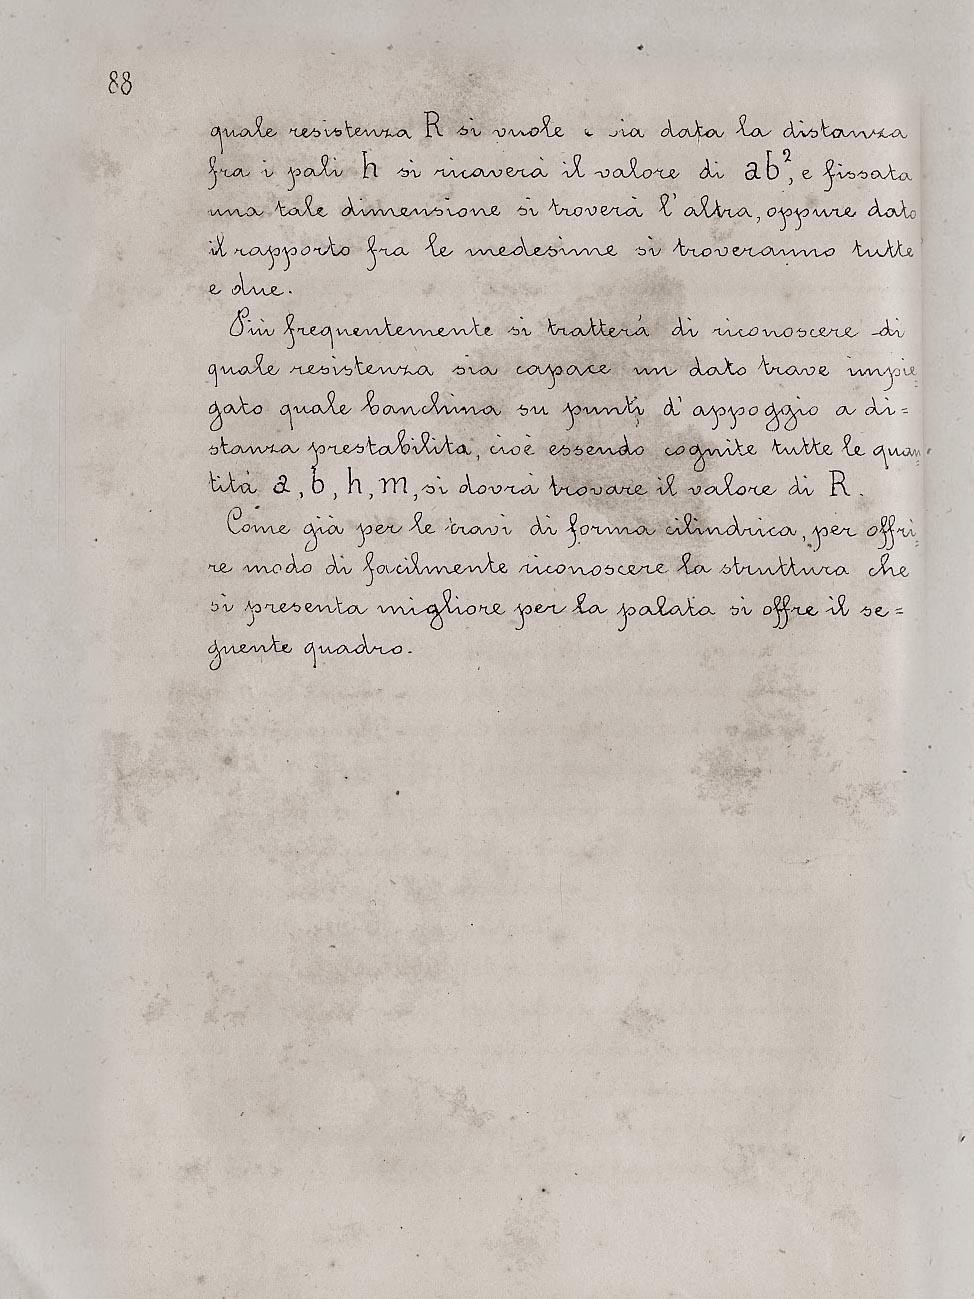 88
quale resistenza R si vuole e sia data la distanza
fra i pali h si ricaverà il valore di ab², e fissata
una tale dimensione si troverà l'altra, oppure dato
il rapporto fra le medesime si troveranno tutte
e due.
Più frequentemente si tratterà di riconoscere di
quale resistenza sia capace un dato trave impie=
gato quale banchina su punti d'appoggio a di=
stanza prestabilita, cioè essendo cognite tutte le quan=
tità a, b, h, m, si dovrà trovare il valore di R.
Come già per le travi di forma cilindrica, per offri=
re modo di facilmente riconoscere la struttura che
si presenta migliore per la palata si offre il se=
guente quadro.